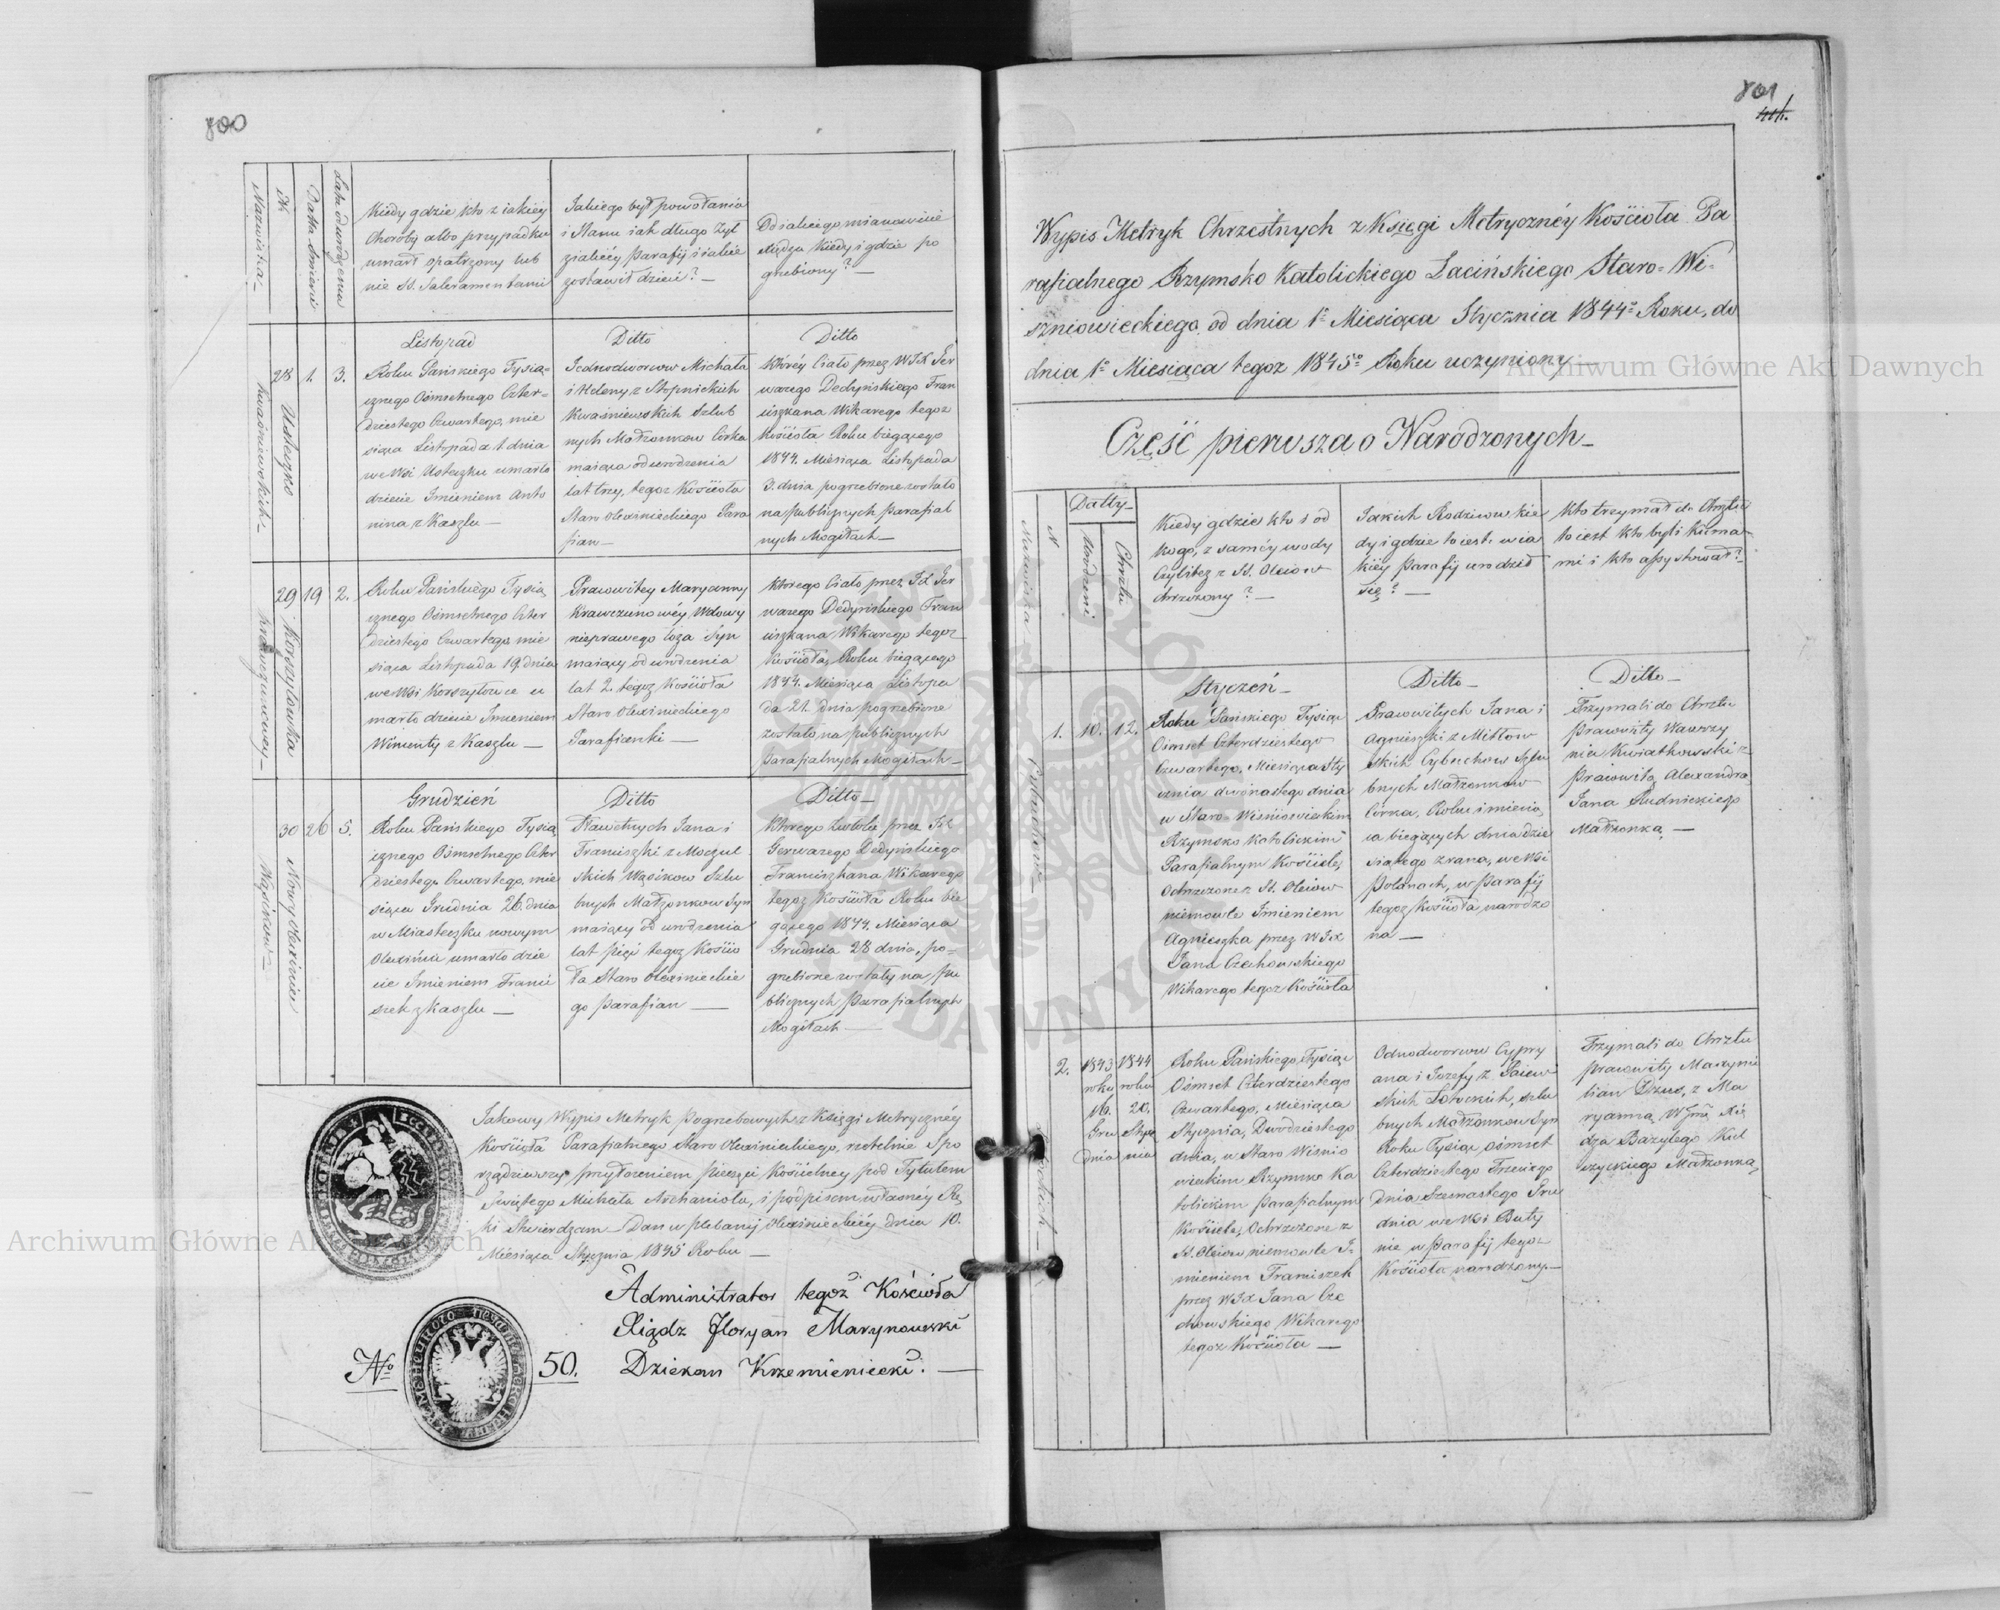 800
Nazwiska
N.
Data śmierci
Lata od urodzenia
Kiedy gdzie kto z iakiéy
Choroby albo przypadku
umarł opatrzony lub
nie SS. Sakramentami
Jakiego był powołania
i Stanu iak długo żył
z iakiéy parafij i iakie
zostawił dzieci? —
Od iakiego mianowicie
Xiędza kiedy i gdzie po
grzebiony? —
28
1.
3.
Uściczko
Kwaśniewskich —
Listopad
Roku Pańskiego Tysią-
cznego Ośmsetnego Czter-
dziestego Czwartego, mie
siąca Listopada 1. dnia
we Wsi Usteczku umarło
dziecie Imieniem Anto
nina z Kaszlu —
Ditto
Jednodworcow Michała
i Heleny z Stopnickich
Kwaśniewskich Szlub
nych Małżonkow Córka
maiąca od urodzenia
lat trzy, tegoż Kościoła
Staro Olexinieckiego Para
fian —
Ditto
Któréy Ciało przez WJX Ger
wazego Dedyńskiego Fran
ciszkana Wikarego tegoż
Kościoła Roku bieżącego
1844. Miesiąca Listopada
3. dnia pogrzebione zostało
na publicznych parafial
nych Mogiłach —
29
19
2.
Korszyłowka
Krawczuncowey —
Roku Pańskiego Tysią
cznego Ośmsetnego Czter
dziestego Czwartego, mie
siąca Listopada 19. dnia
we Wsi Korszyłowce u
marło dziecie Imieniem
Wincenty z Kaszlu —
Prawowitey Maryanny
Krawczunowéy, Wdowy
nieprawego łoża Syn
maiący od urodzenia
lat 2. tegoż Kościoła
Staro Olexinieckiego
Parafianki —
Ktorego Ciało przez JX Ger
wazego Dedyńskiego Fran
ciszkana Wikarego tegoż
Kościoła, Roku bieżącego
1844. Miesiąca Listopa
da 21. dnia pogrzebione
zostało na publicznych
parafialnych Mogiłach —
30
26
5.
Nowy Olexiniec
Wąsikow —
Grudzień
Roku Pańskiego Tysią
cznego Ośmsetnego Czter
dziestego Czwartego, mie
siąca Grudnia 26. dnia
w Miasteczku nowym
Olexińcu umarło dzie
cie Imieniem Franci
szek z Kaszlu —
Ditto
Sławetnych Jana i
Franciszki z Moczul
skich Wąsikow Szlu
bnych Małżonkow Syn
maiący od urodzenia
lat pięć tegoż Kościo
ła Staro Olexinieckie
go parafian —
Ditto —
Ktorego Zwłoki przez JX
Gerwazego Dedyńskiego
Franciszkana Wikarego
tegoż Kościoła Roku bie
żącego 1844. Miesiąca
Grudnia 28 dnia, po-
grzebione zostały na pu
blicznych parafialnych
Mogiłach —
Jakowy Wypis Metryk Pogrzebowych z Księgi Metrycznéy
Kościoła Parafialnego Staro Olexinieckiego, rzetelnie Spo
rządziwszy, przyłożeniem pieczęci Kościelney pod Tytułem
Świętego Michała Archanioła, i podpisem własnéy Rę
ki Stwierdzam — Dan w plebanij Olexinieckiéy dnia 10.
Miesiąca Stycznia 1845 Roku —
Administrator tegoż Kościoła
Xiądz Floryan Marynowski
Dziekan Krzemieniecki. —
No
50.
801
Wypis Metryk Chrzestnych z Księgi Metrycznéy Kościoła Pa
rafialnego Rzymsko Katolickiego Łacińskiego Staro-Wi-
szniowieckiego, od dnia 1o Miesiąca Stycznia 1844o Roku, do
dnia 1o Miesiąca tegoż 1845o Roku uczyniony —
Część pierwsza o Narodzonych —
N
Nazwiska
Datty —
Urodzeni
Chrztu
Kiedy gdzie kto i od
kogo, z saméy wody
Czyli też z SS. Oleiow
chrzczony? —
Jakich Rodzicow kie
dy i gdzie to iest. w ia
kiéy Parafij urodził
się? —
Kto trzymał do Chrztu
to iest kto byli Kuma-
mi i kto assystował? —
1.
10.
12.
Cybuchow —
Styczeń —
Roku Pańskiego Tysiąc
Ośmset Czterdziestego
Czwartego, Miesiąca Sty
cznia dwónastego dnia
w Staro-Wiśniowieckim
Rzymsko Katolickim
Parafialnym Kościele,
Ochrzczone z SS. Oleiow
niemowle Imieniem
Agnieszka przez WJX
Jana Czechowskiego
Wikarego tegoż Kościoła
Ditto —
Prawowitych Jana i
Agnieszki z Mitłow
skich Cybuchow Szlu
bnych Małżonkow
Córka, Roku i miesią
ca bieżących dnia dzie
siątego z rana, we Wsi
Polanach, w Parafij
tegoż Kościoła narodzo
na —
Ditto —
Trzymali do Chrztu
prawowity Wawrzy
niec Kwiatkowski z
Prawowitą Alexandrą
Jana Rudnickiego
Małżonką —
2.
1843
roku
16.
Gru
dnia
1844
roku
20.
Stycz
nia
Łotockich —
Roku Pańskiego, Tysiąc
Ośmset Czterdziestego
Czwartego, Miesiąca
Stycznia, Dwódziestego
dnia, w Staro Wiśnio
wieckim Rzymsko Ka
tolickim Parafialnym
Kościele, Ochrzczone z
SS. Oleiow niemowle I-
mieniem Franciszek
przez WJX Jana Cze
chowskiego Wikarego
tegoż Kościoła —
Odnodworcow Cypry
ana i Jozefy z Paiew
skich Łotockich, szlu
bnych Małżonkow Syn
Roku Tysiąc ośmset
Czterdziestego Trzeciego
dnia Szesnastego Gru
dnia we Wsi Buty
nie w Parafij tegoż
Kościoła narodzony —
Trzymali do Chrztu
prawowity Maxymi
lian Dzus, z Ma
ryanną,
dza Bazylego Kul
czyckiego Małżonką,
Archiwum Główne Akt Dawnych
Archiwum Główne Akt Dawnych